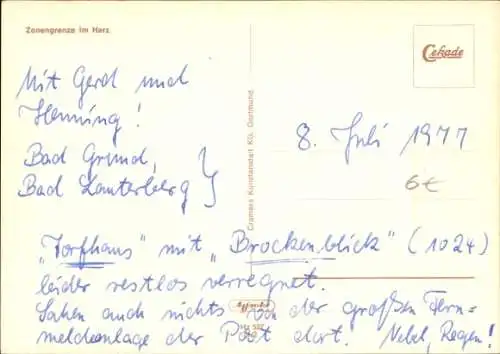 Zonengrenze im Harz
Cekade
Mit Gerd und
Henning!
Bad Grund,
Bad Lauterberg }
Cramers Kunstanstalt KG, Dortmund
8. Juli 1977
6€
„Torfhaus" mit „Brockenblick" (1024)
leider restlos verregnet.
Sahen auch nichts von der großen Fern-
meldeanlage der Post dort. Nebel, Regen!